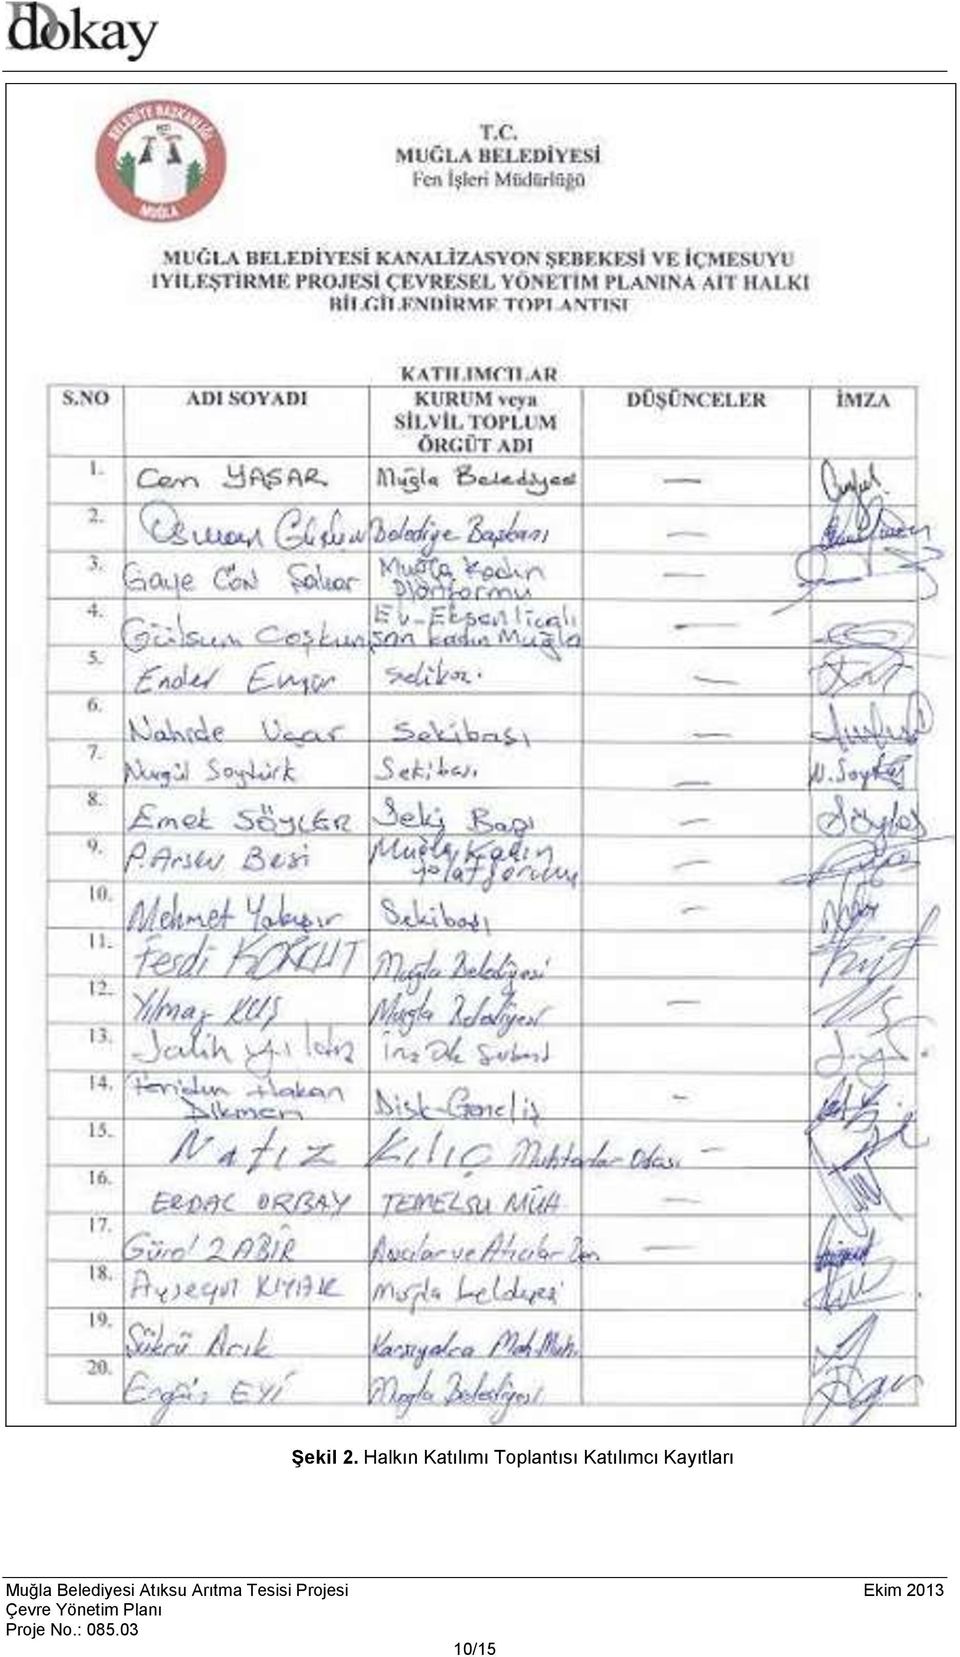 Dokay
BELEDİYE BAŞKANLIĞI
MUĞLA
T.C.
MUĞLA BELEDİYESİ
Fen İşleri Müdürlüğü
MUĞLA BELEDİYESİ KANALİZASYON ŞEBEKESİ VE İÇMESUYU
İYİLEŞTİRME PROJESİ ÇEVRESEL YÖNETİM PLANINA AİT HALKI
BİLGİLENDİRME TOPLANTISI
KATILIMCILAR
S.NO ADI SOYADI KURUM veya SİLVİL TOPLUM ÖRGÜT ADI DÜŞÜNCELER İMZA
1. Cem YAŞAR Muğla Belediyesi —
2. Osman Gürün Belediye Başkanı —
3. Gaye CÖN Muğla Kadın Platformu
4. Gülsum Coşkun Ev-Eksenli kadın Muğla —
5. Ender —
6. Nahide Uçar Sekibaşı —
7. Nurgül Soytürk Sekibaşı — N. Soytürk
8. Emek SÖYLER Seki Başı —
9. P. Arsev Besi Muğla Kadın Platformu —
10. Mehmet Yakışır Sekibaşı —
11. KORKUT Muğla Belediyesi
12. Yılmaz KUŞ Muğla Belediyesi —
13. Yıldız
14. Feridun Hakan Dikmen Disk-Genel iş —
15. Nafiz KILIÇ Muhtarlar Odası —
16. ERDAL ORBAY TEMELSU MÜH. —
17. Gürol ZABİR Avcılar ve Atıcılar —
18. Ayşegül KIYAK Muğla Belediyesi
19. Şükrü Arık Karşıyaka Mah. Muh.
20. Ergün EYİ Muğla Belediyesi
Şekil 2. Halkın Katılımı Toplantısı Katılımcı Kayıtları
Muğla Belediyesi Atıksu Arıtma Tesisi Projesi Ekim 2013
Çevre Yönetim Planı
Proje No.: 085.03
10/15